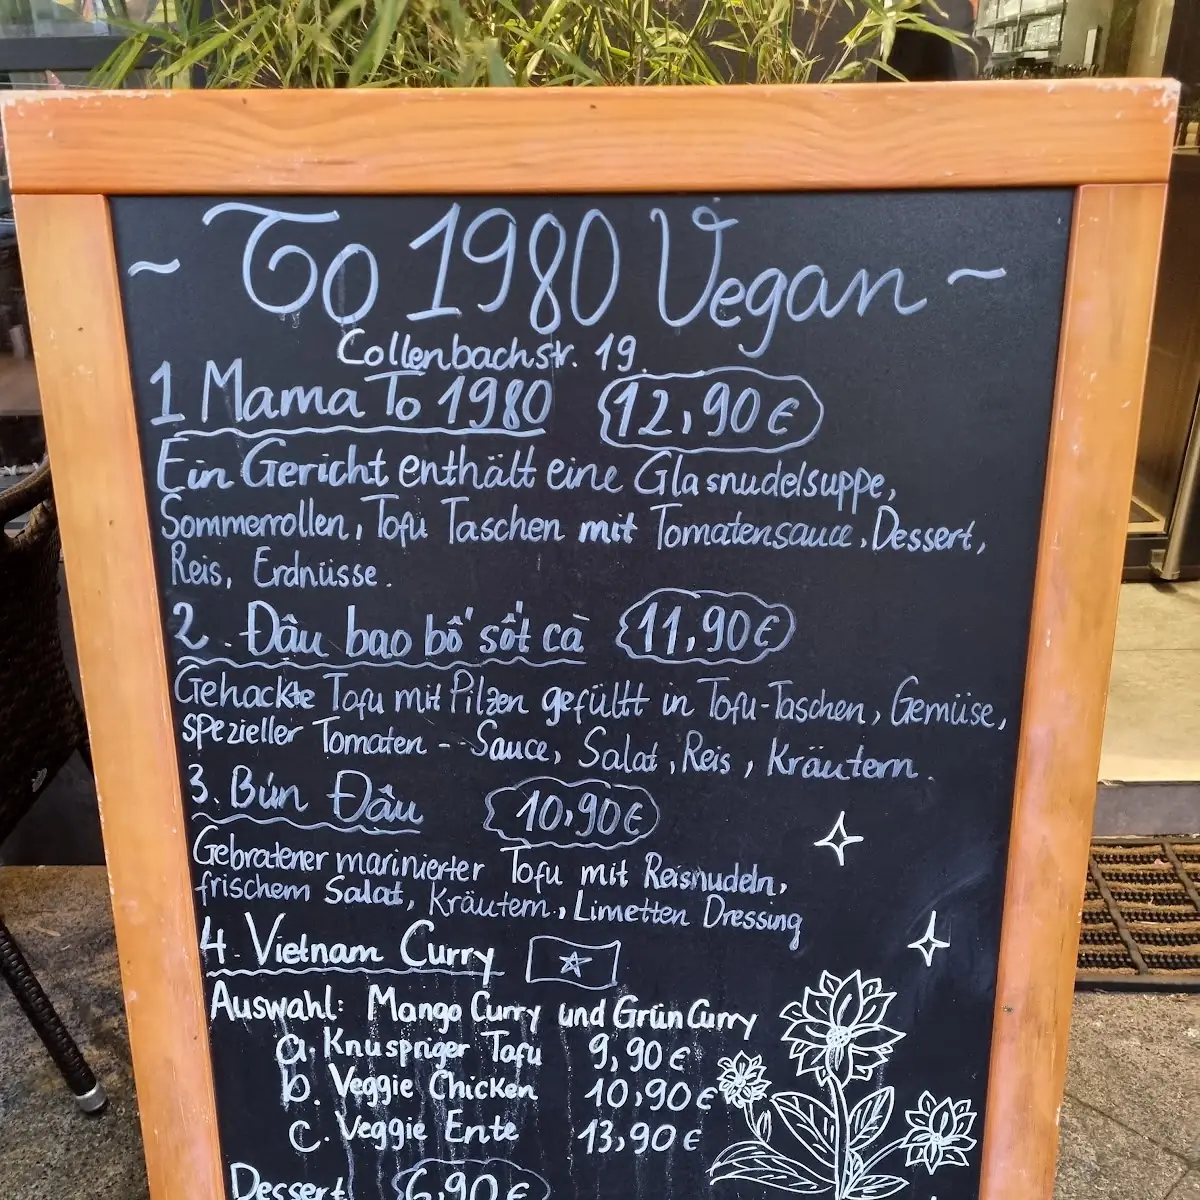 ~ To 1980 Vegan ~
Collenbachstr. 19.
1 Mama To 1980 12,90€
Ein Gericht enthält eine Glasnudelsuppe,
Sommerrollen, Tofu Taschen mit Tomatensauce, Dessert,
Reis, Erdnüsse.
2. Đâu bao bô' sốt cà 11,90€
Gehackte Tofu mit Pilzen gefüllt in Tofu-Taschen, Gemüse,
spezieller Tomaten -- Sauce, Salat, Reis, Kräutern.
3. Bún Đâu 10,90€
Gebratener marinierter Tofu mit Reisnudeln,
frischem Salat, Kräutern, Limetten Dressing
4. Vietnam Curry
Auswahl: Mango Curry und Grün Curry
a. Knuspriger Tofu 9,90€
b. Veggie Chicken 10,90€
c. Veggie Ente 13,90€
Dessert 6,90€